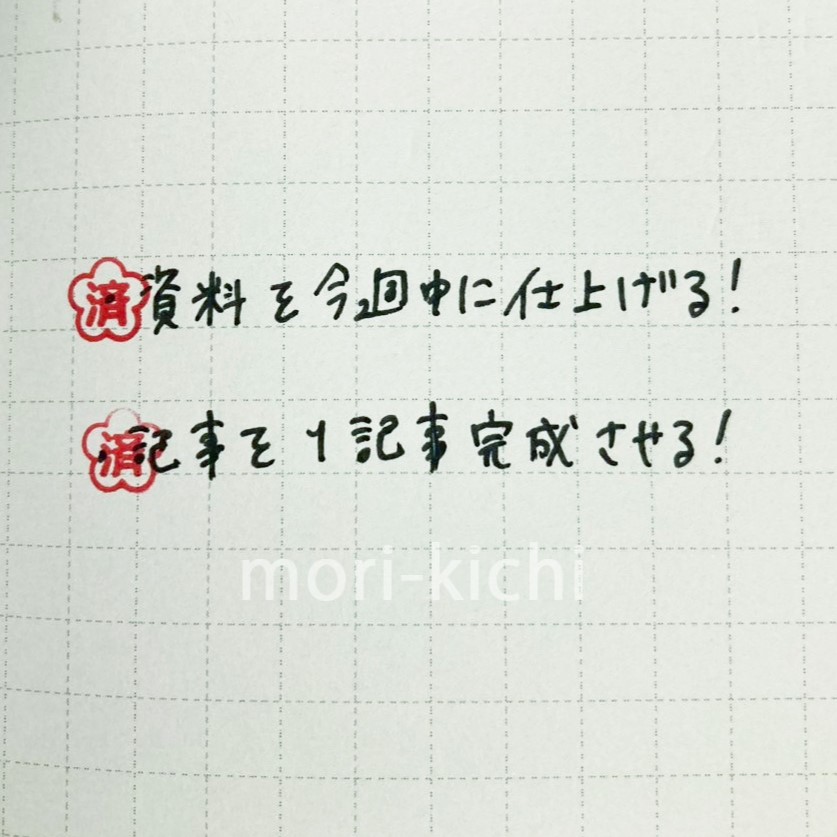 済・資料を今週中に仕上げる!
済・記事を1記事完成させる!
mori-kichi